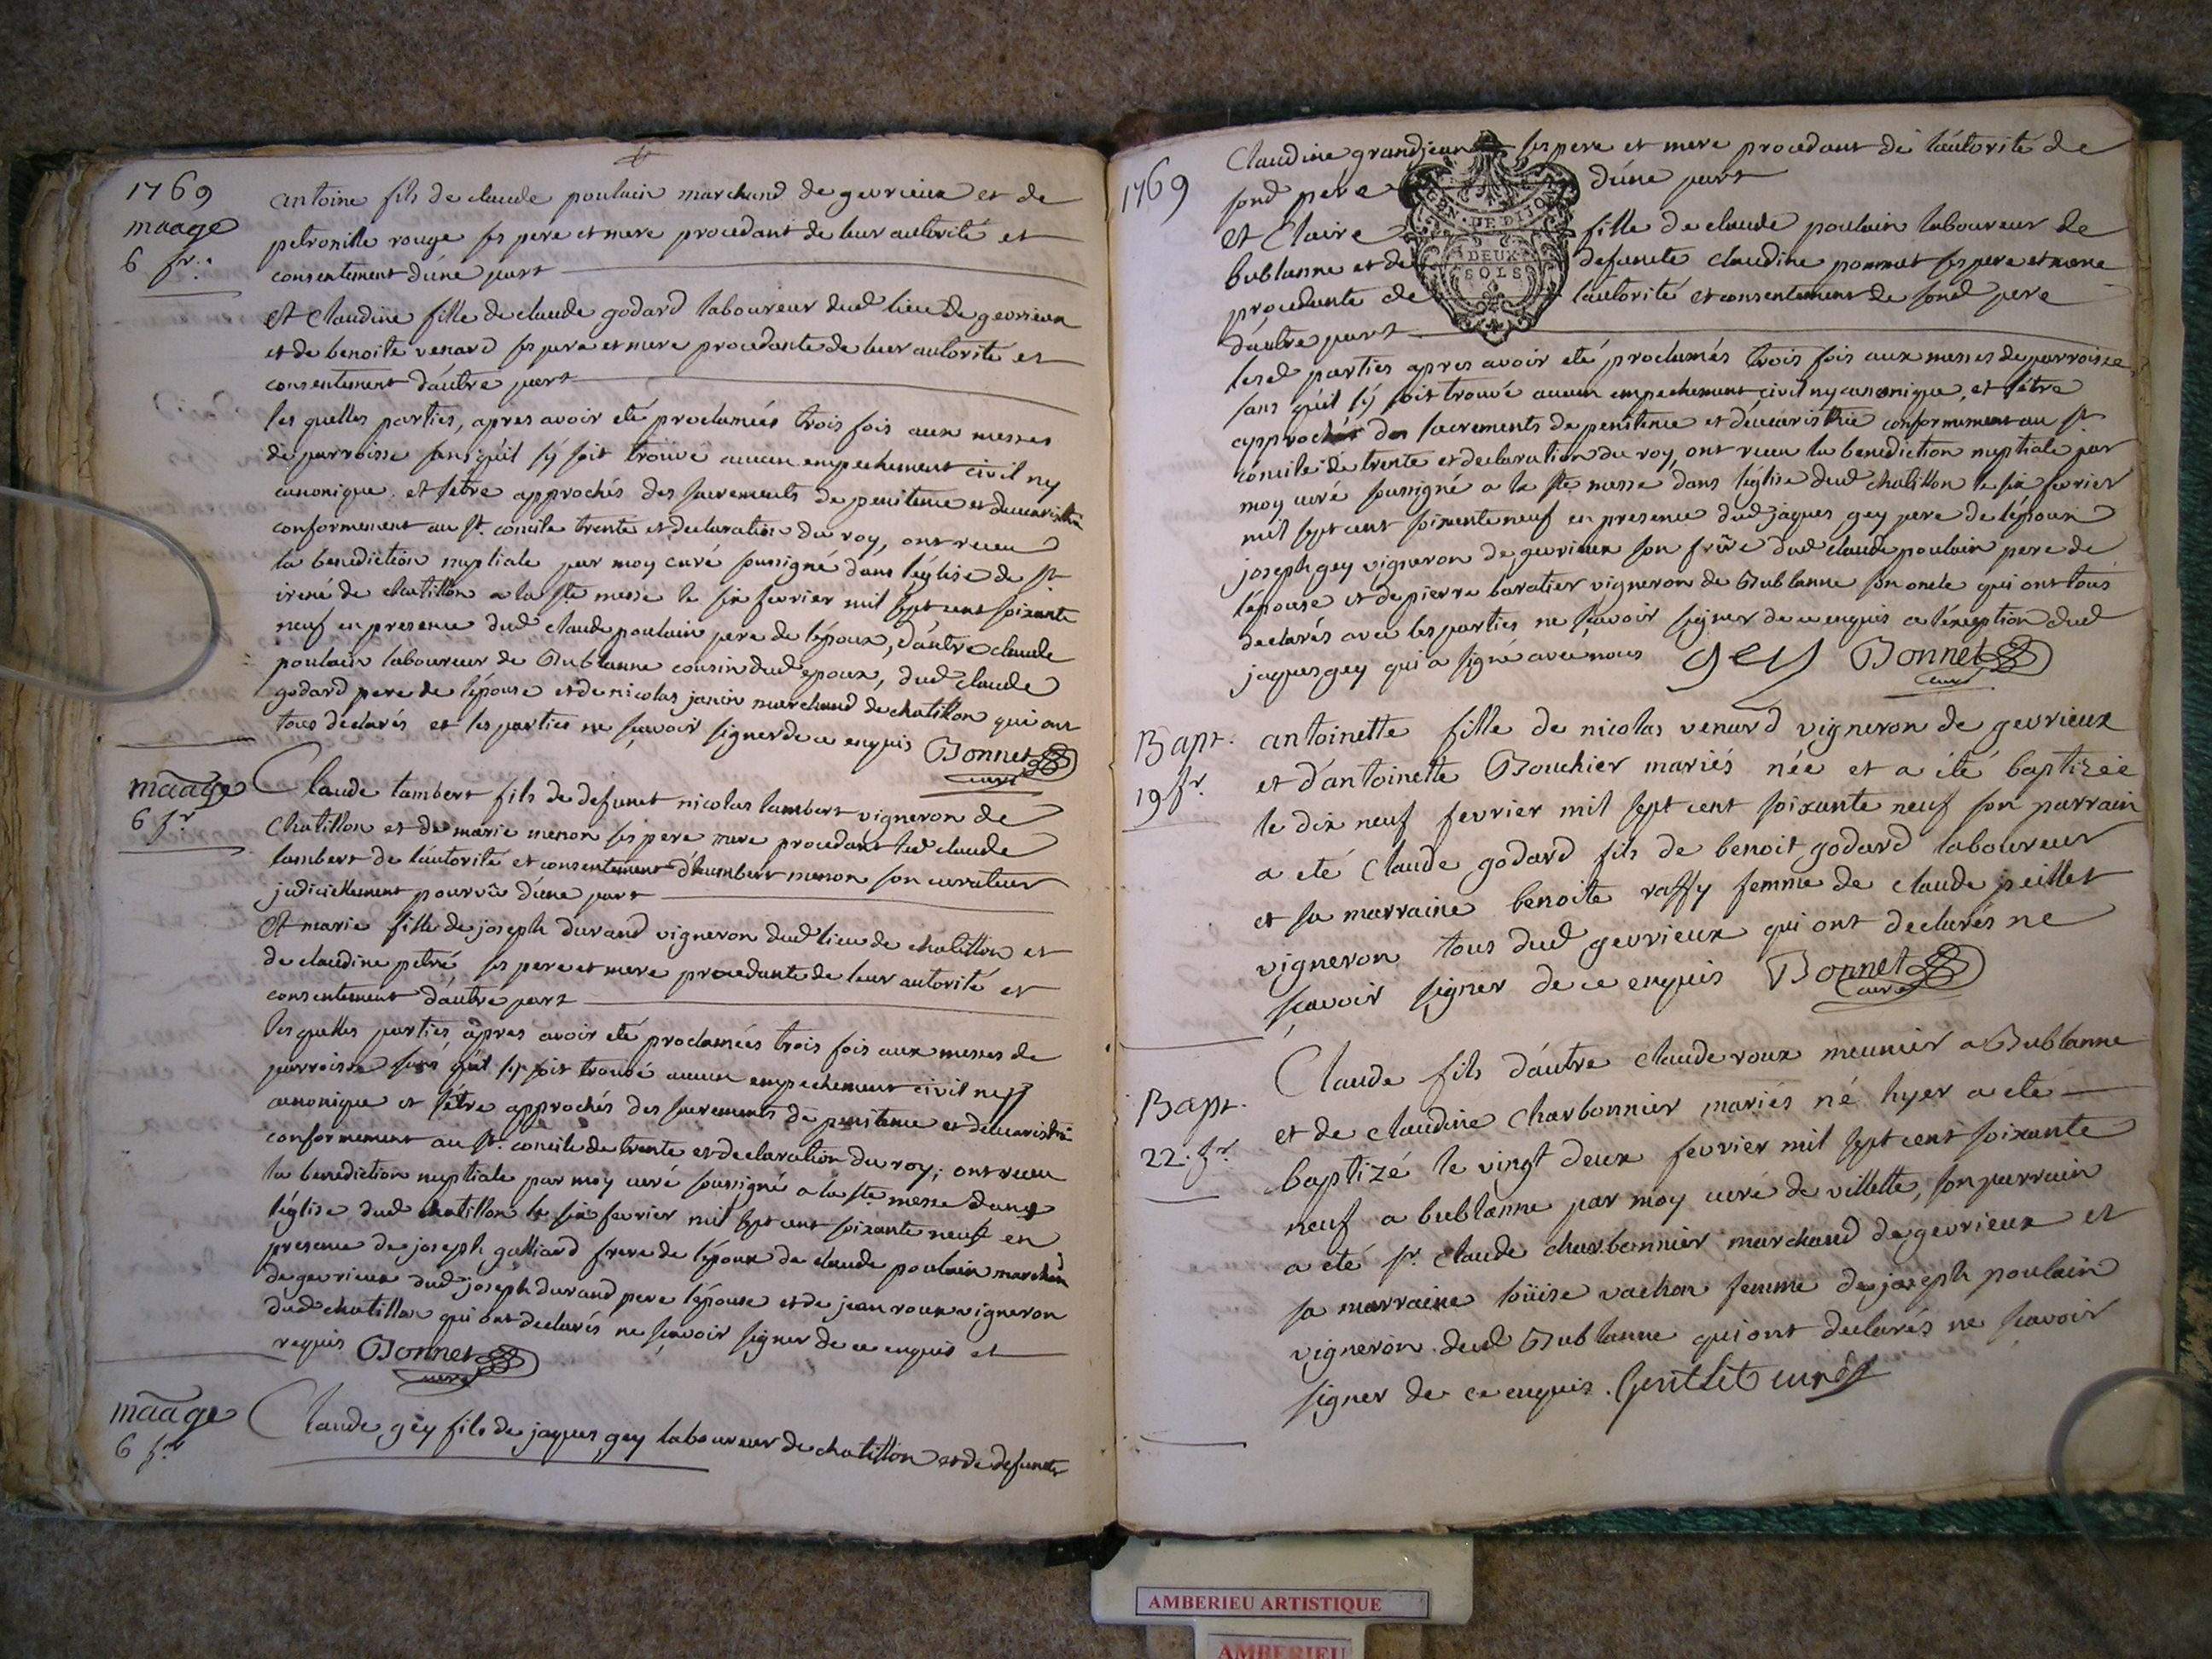 1769
maage
6 fr.
antoine fils de claude poulain marchand de gevrieux et de
petronille rouge ses pere et mere procedant de leur autorité et
consentement d'une part
et Claudine fille de claude godard laboureur dud lieu de gevrieux
et de benoite venard ses pere et mere procedante de leur autorité et
consentement d'autre part
les quelles parties, apres avoir eté proclamées trois fois aux messes
de parroisse sans qu'il s'y soit trouvé aucun empechement civil ny
canonique, et s'etre approchés des sacrements de penitence et d'eucaristie
conformement au st. concile trente et declaration du roy, ont receu
la benediction nuptiale par moy curé soussigné dans l'église de st
irené de chatillon a la ste messe le six fevrier mil sept cent soixante
neuf en presence dud claude poulain pere de l'époux, d'autre claude
poulain laboureur de Bublanne cousin dud epoux, dud claude
godard pere de l'épouse et de nicolas janin marchand de chatillon qui ont
tous declarés et les parties ne sçavoir signer de ce enquis Bonnet
curé
maage
6 fr
Claude lambert fils de defunct nicolas lambert vigneron de
Chatillon et de marie menon ses pere mere procedant led claude
lambert de l'autorité et consentement d'humbert menon son curateur
judiciellement pourvû d'une part
Et marie fille de joseph durand vigneron dud lieu de chatillon et
de claudine petré ses pere et mere procedante de leur autorité et
consentement d'autre part
les quelles parties apres avoir eté proclamées trois fois aux messes de
parroisse sans qu'il s'y soit trouvé aucun empechement civil ny
canonique et s'étre approchés des sacrements de penitence et d'eucaristie
conformement au st. concile de trente et declaration du roy; ont receu
la benediction nuptiale par moy curé soussigné a la ste messe dans
l'église dud chatillon le six fevrier mil sept cent soixante neuf en
presence de joseph galliard frere de l'époux de claude poulain marchand
de gevrieux dud joseph durand pere l'épouse et de jean roux vigneron
dud chatillon qui ont declarés ne sçavoir signer de ce enquis et
requis Bonnet
curé
maage
6 fr
Claude gey fils de jaques gey laboureur de chatillon et de defuncte
1769
Claudine grandjean ses pere et mere procedant de l'autorité de
sond pere d'une part
et Claire fille de claude poulain laboureur de
bublanne et de defuncte claudine pommat ses pere et mere
procedante de l'autorité et consentement de sond pere
d'autre part
GEN. DE DIJON
DEUX
SOLS
lesd parties apres avoir eté proclamés trois fois aux messes de parroisse
sans qu'il s'y soit trouvé aucun empechement civil ny canonique, et s'étre
approchés des sacrements de penitence et d'eucaristhie conformement au st
concile de trente et declaration du roy, ont receu la benediction nuptiale par
moy curé soussigné a la ste messe dans l'église dud chatillon le six fevrier
mil sept cent soixante neuf en presence dud jaques gey pere de l'époux
joseph gey vigneron de gevrieux son frere dud claude poulain pere de
l'épouse et de pierre baratier vigneron de Bublanne son oncle qui ont tous
declarés avec les parties ne sçavoir signer de ce enquis a l'exeption dud
jaques gey qui a signé avec nous gey Bonnet
curé
Bapt.
19 fr.
antoinette fille de nicolas venard vigneron de gevrieux
et d'antoinette Bouchier mariés née et a été baptizée
le dix neuf fevrier mil sept cent soixante neuf son parrain
a eté Claude godard fils de benoit godard laboureur
et sa marraine benoite raffy femme de claude peillet
vigneron tous dud gevrieux qui ont declarés ne
sçavoir signer de ce enquis Bonnet
curé
Bapt.
22. fr.
Claude fils d'autre claude roux meunier a Bublanne
et de claudine Charbonnier mariés né hyer a eté
baptizé le vingt deux fevrier mil sept cent soixante
neuf a bublanne par moy curé de villette, son parrain
a eté sr. claude charbonnier marchand de gevrieux et
sa marraine loüise vachon femme de joseph poulain
vigneron dud Bublanne qui ont declarés ne sçavoir
signer de ce enquis. Gentilet curé
AMBERIEU ARTISTIQUE
AMBERIEU